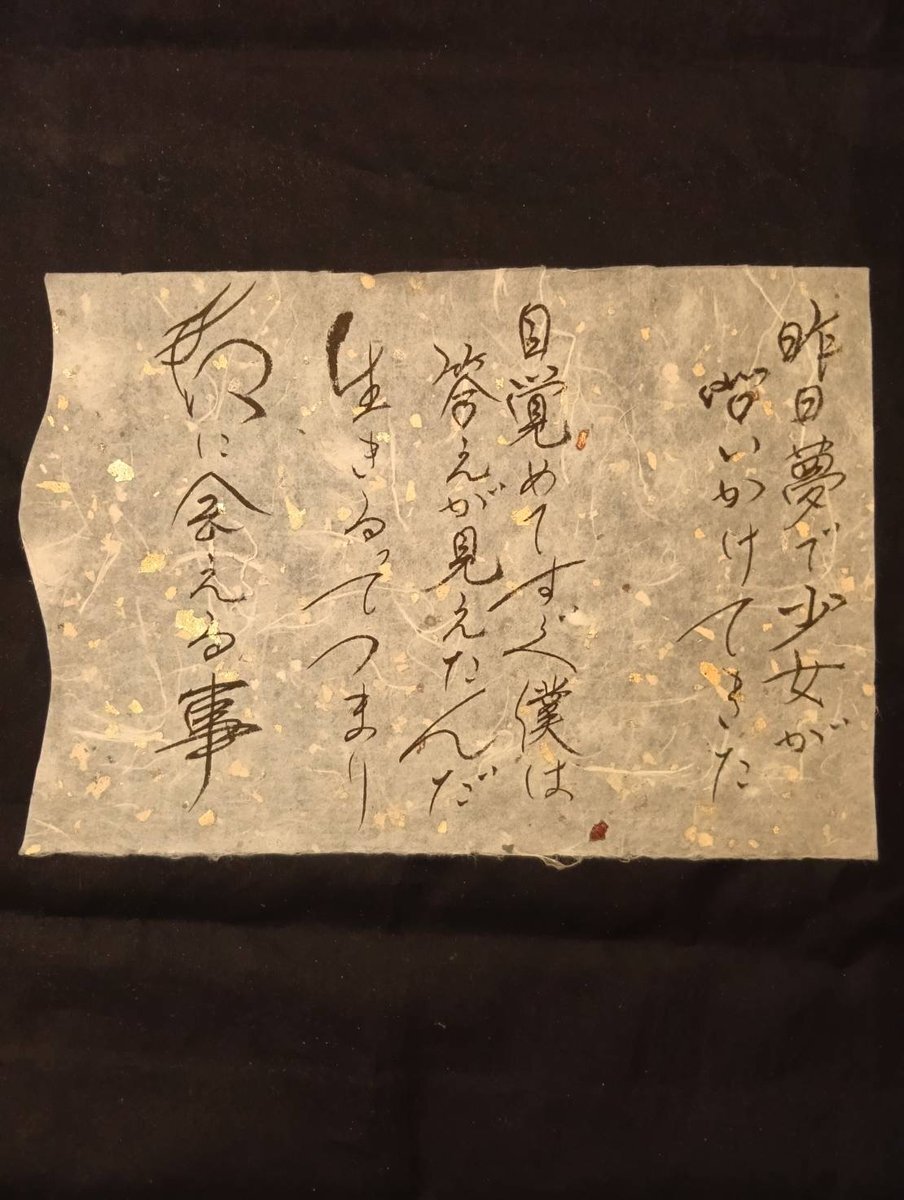 昨日夢で少女が
問いかけてきた
目覚めてすぐ僕は
答えが見えたんだ
生きるってつまり
に会える事